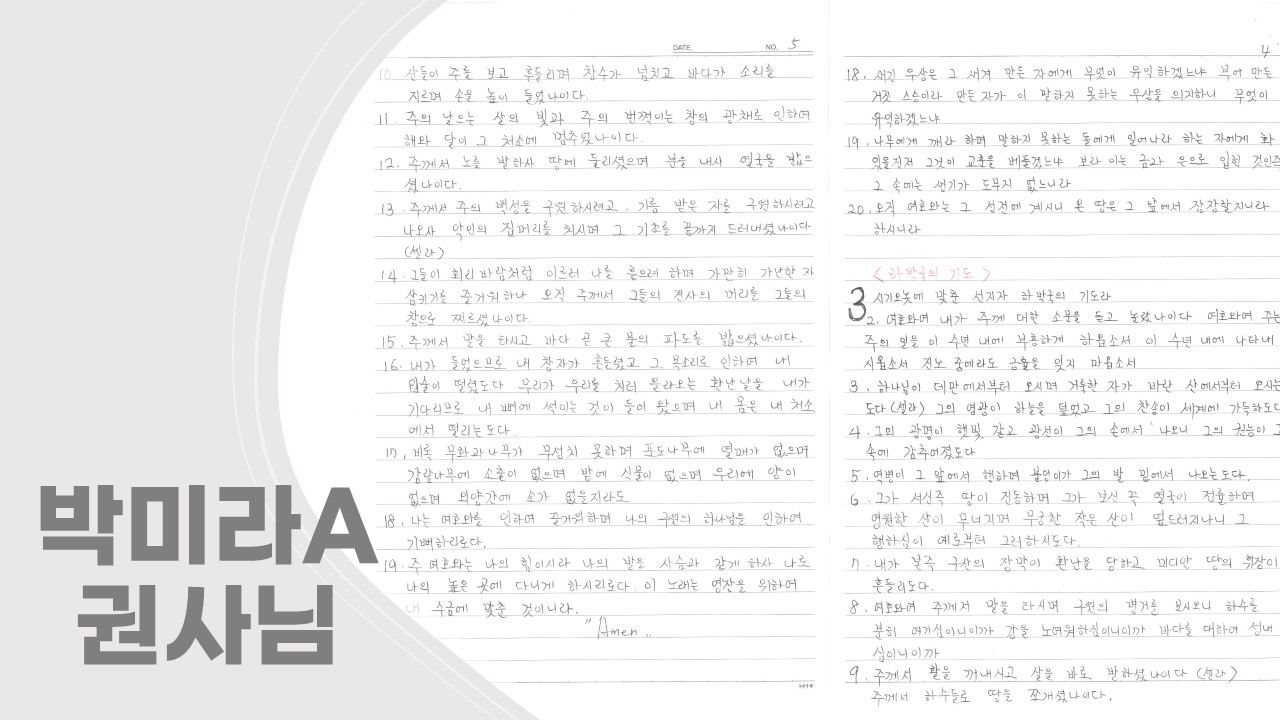 박미라A
권사님
DATE. NO. 5
10. 산들이 주를 보고 흔들리며 창수가 넘치고 바다가 소리를
지르며 손을 높이 들었나이다.
11. 주의 날으는 살의 빛과 주의 번쩍이는 창의 광채로 인하여
해와 달이 그 처소에 멈추었나이다.
12. 주께서 노를 발하사 땅에 둘리셨으며 분을 내사 열국을 밟으
셨나이다.
13. 주께서 주의 백성을 구원하시려고, 기름 받은 자를 구원하시려고
나오사 악인의 집머리를 치시며 그 기초를 끝까지 드러내셨나이다
(셀라)
14. 그들이 회리바람처럼 이르러 나를 흩으려 하며 가만히 가난한 자
삼키기를 즐거워하나 오직 주께서 그들의 전사의 머리를 그들의
창으로 찌르셨나이다.
15. 주께서 말을 타시고 바다 곧 큰 물의 파도를 밟으셨나이다.
16. 내가 들었으므로 내 창자가 흔들렸고 그 목소리로 인하여 내
입술이 떨렸도다 무리가 우리를 치러 올라오는 환난날을 내가
기다리므로 내 뼈에 썩이는 것이 들어 왔으며 내 몸은 내 처소
에서 떨리는도다.
17. 비록 무화과나무가 무성치 못하며 포도나무에 열매가 없으며
감람나무에 소출이 없으며 밭에 식물이 없으며 우리에 양이
없으며 외양간에 소가 없을지라도
18. 나는 여호와를 인하여 즐거워하며 나의 구원의 하나님을 인하여
기뻐하리로다.
19. 주 여호와는 나의 힘이시라 나의 발을 사슴과 같게 하사 나로
나의 높은 곳에 다니게 하시리로다. 이 노래는 영장을 위하여
내 수금에 맞춘 것이니라.
"Amen"
4
18. 새긴 우상은 그 새겨 만든 자에게 무엇이 유익하겠느냐 부어 만든
거짓 스승이라 만든 자가 이 말하지 못하는 우상을 의지하니 무엇이
유익하겠느냐
19. 나무에게 깨라 하며 말하지 못하는 돌에게 일어나라 하는 자에게 화
있을진저 그것이 교훈을 베풀겠느냐 보라 이는 금과 은으로 입힌 것인즉
그 속에는 생기가 도무지 없느니라
20. 오직 여호와는 그 성전에 계시니 온 땅은 그 앞에서 잠잠할지니라
하시니라
<하박국의 기도>
3 시기오놋에 맞춘 선지자 하박국의 기도라
2. 여호와여 내가 주께 대한 소문을 듣고 놀랐나이다 여호와여 주는
주의 일을 이 수년 내에 부흥하게 하옵소서 이 수년 내에 나타내
시옵소서 진노 중에라도 긍휼을 잊지 마옵소서
3. 하나님이 데만에서부터 오시며 거룩한 자가 바란 산에서부터 오시는
도다 (셀라) 그의 영광이 하늘을 덮었고 그의 찬송이 세계에 가득하도다
4. 그의 광명이 햇빛 같고 광선이 그의 손에서 나오니 그의 권능이 그
속에 감추어졌도다
5. 역병이 그 앞에서 행하며 불덩이가 그의 발 밑에서 나오는도다.
6. 그가 서신즉 땅이 진동하며 그가 보신 즉 열국이 전율하며
영원한 산이 무너지며 무궁한 작은 산이 엎드러지나니 그
행하심이 예로부터 그러하시도다.
7. 내가 본즉 구산의 장막이 환난을 당하고 미디안 땅의 휘장이
흔들리도다.
8. 여호와여 주께서 말을 타시며 구원의 병거를 모시오니 하수를
분히 여기심이니이까 강을 노여워하심이니이까 바다를 대하여 성내
심이니이까
9. 주께서 활을 꺼내시고 살을 바로 발하셨나이다 (셀라)
주께서 하수들로 땅을 쪼개셨나이다.